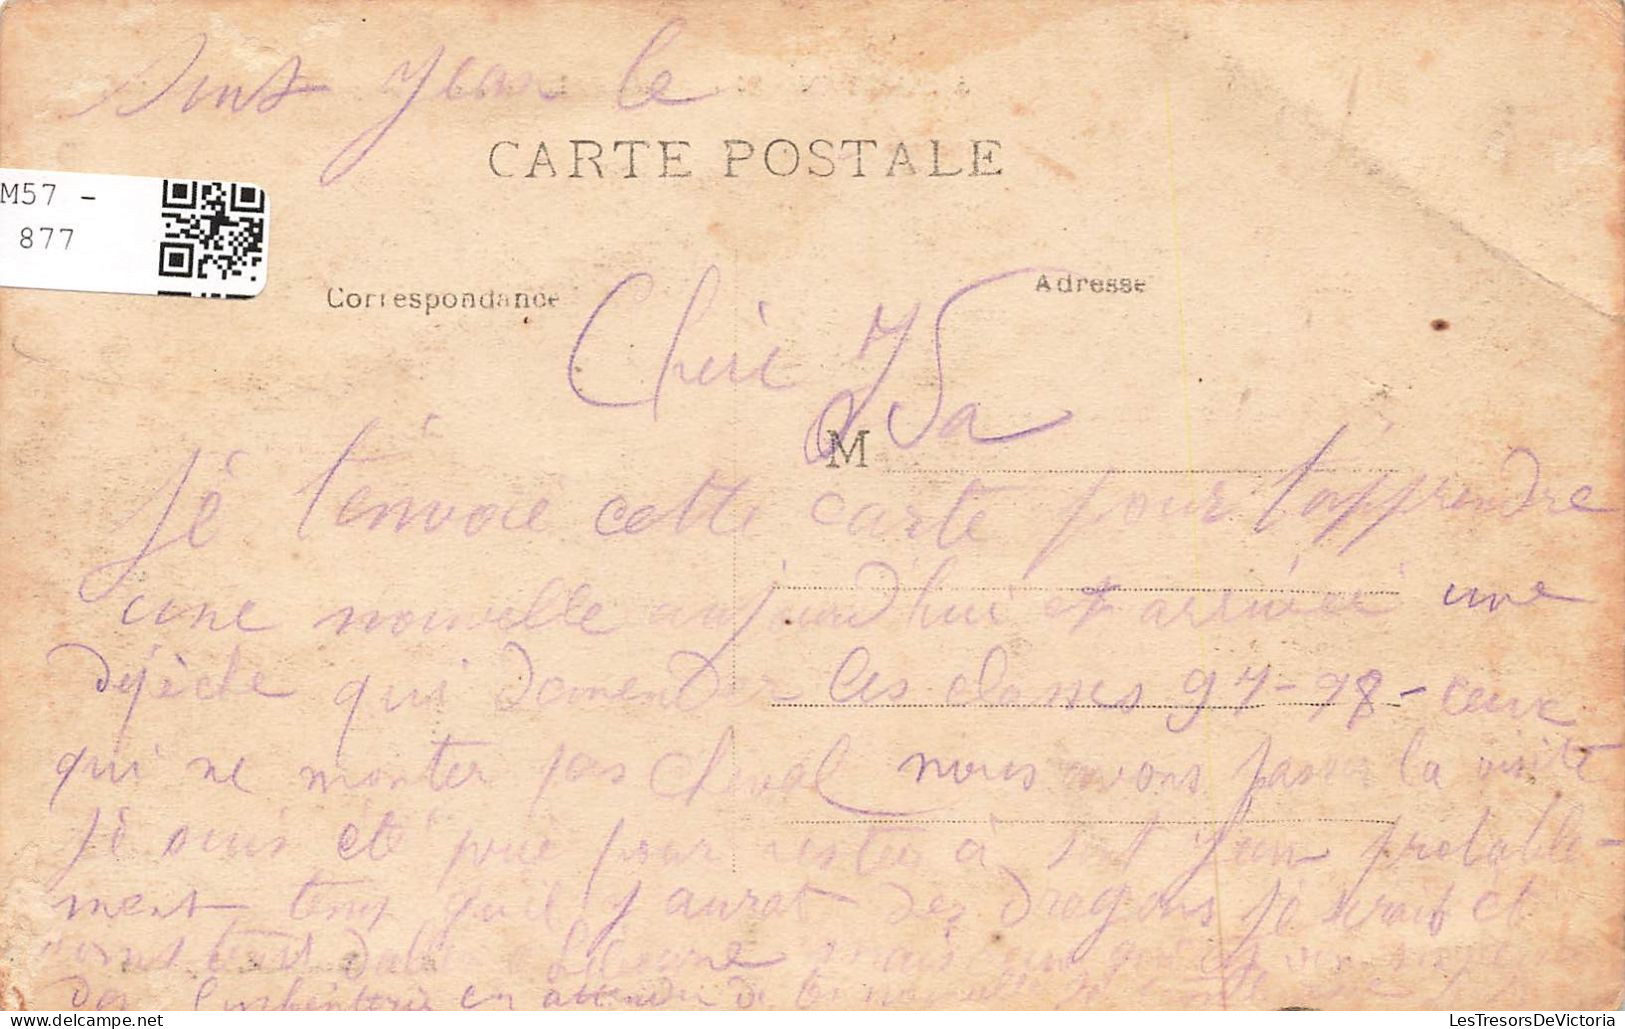 Sint Jean le
CARTE POSTALE
M57 -
877
Correspondance
Adresse
Cheri Isa
M
Je t'envoie cette carte pour t'apprendre
une nouvelle aujourd'hui et arrivée une
dépèche qui demender les classes 97-98- ceux
qui ne monter pas cheval nous avons passer la visite
Je suis été pour rester à Sint Jean probable-
ment temp qu'il y aurat des dragons je serait et
mais
en attendu de
LesTresorsDeVictoria.com